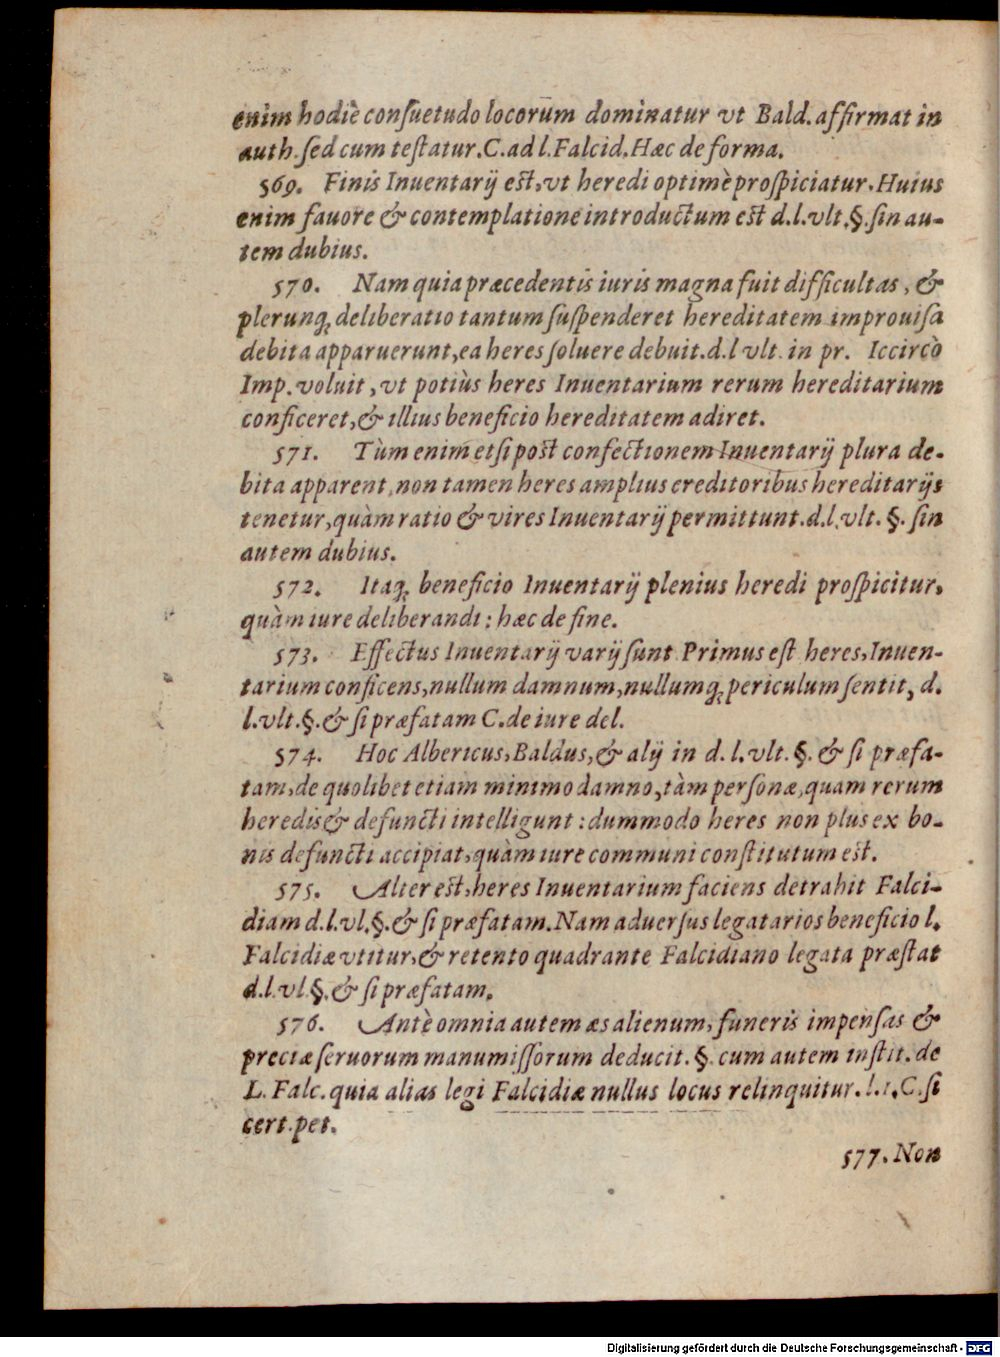 enim hodiè consuetudo locorum dominatur vt Bald. affirmat in
auth. sed cum testatur. C. ad l. Falcid. Hæc de forma.
569. Finis Inuentarij est, vt heredi optimè prospiciatur. Huius
enim fauore & contemplatione introductum est d. l. vlt. §. sin au-
tem dubius.
570. Nam quia præcedentis iuris magna fuit difficultas, &
plerunq; deliberatio tantum suspenderet hereditatem improuisa
debita apparuerunt, ea heres soluere debuit. d. l vlt. in pr. Iccircò
Imp. voluit, vt potiùs heres Inuentarium rerum hereditarium
conficeret, & illius beneficio hereditatem adiret.
571. Tùm enim etsi post confectionem Inuentarij plura de-
bita apparent, non tamen heres amplius creditoribus hereditarijs
tenetur, quàm ratio & vires Inuentarij permittunt. d. l. vlt. §. sin
autem dubius.
572. Itaq; beneficio Inuentarij plenius heredi prospicitur,
quàm iure deliberandi: hæc de fine.
573. Effectus Inuentarij varij sunt Primus est heres, Inuen-
tarium conficens, nullum damnum, nullumq; periculum sentit, d.
l. vlt. §. & si præfatam C. de iure del.
574. Hoc Albericus, Baldus, & alij in d. l. vlt. §. & si præfa-
tam, de quolibet etiam minimo damno, tàm personæ, quam rerum
heredis & defuncti intelligunt: dummodo heres non plus ex bo-
nis defuncti accipiat, quàm iure communi constitutum est.
575. Alter est, heres Inuentarium faciens detrahit Falci-
diam d. l. vl. §. & si præfatam. Nam aduersus legatarios beneficio l.
Falcidiæ vtitur, & retento quadrante Falcidiano legata præstat
d. l. vl. §. & si præfatam.
576. Antè omnia autem æs alienum, funeris impensas &
preciæ seruorum manumissorum deducit. §. cum autem instit. de
L. Falc. quia alias legi Falcidiæ nullus locus relinquitur. l. 1. C. si
cert. pet.
577. Non
Digitalisierung gefördert durch die Deutsche Forschungsgemeinschaft - DFG